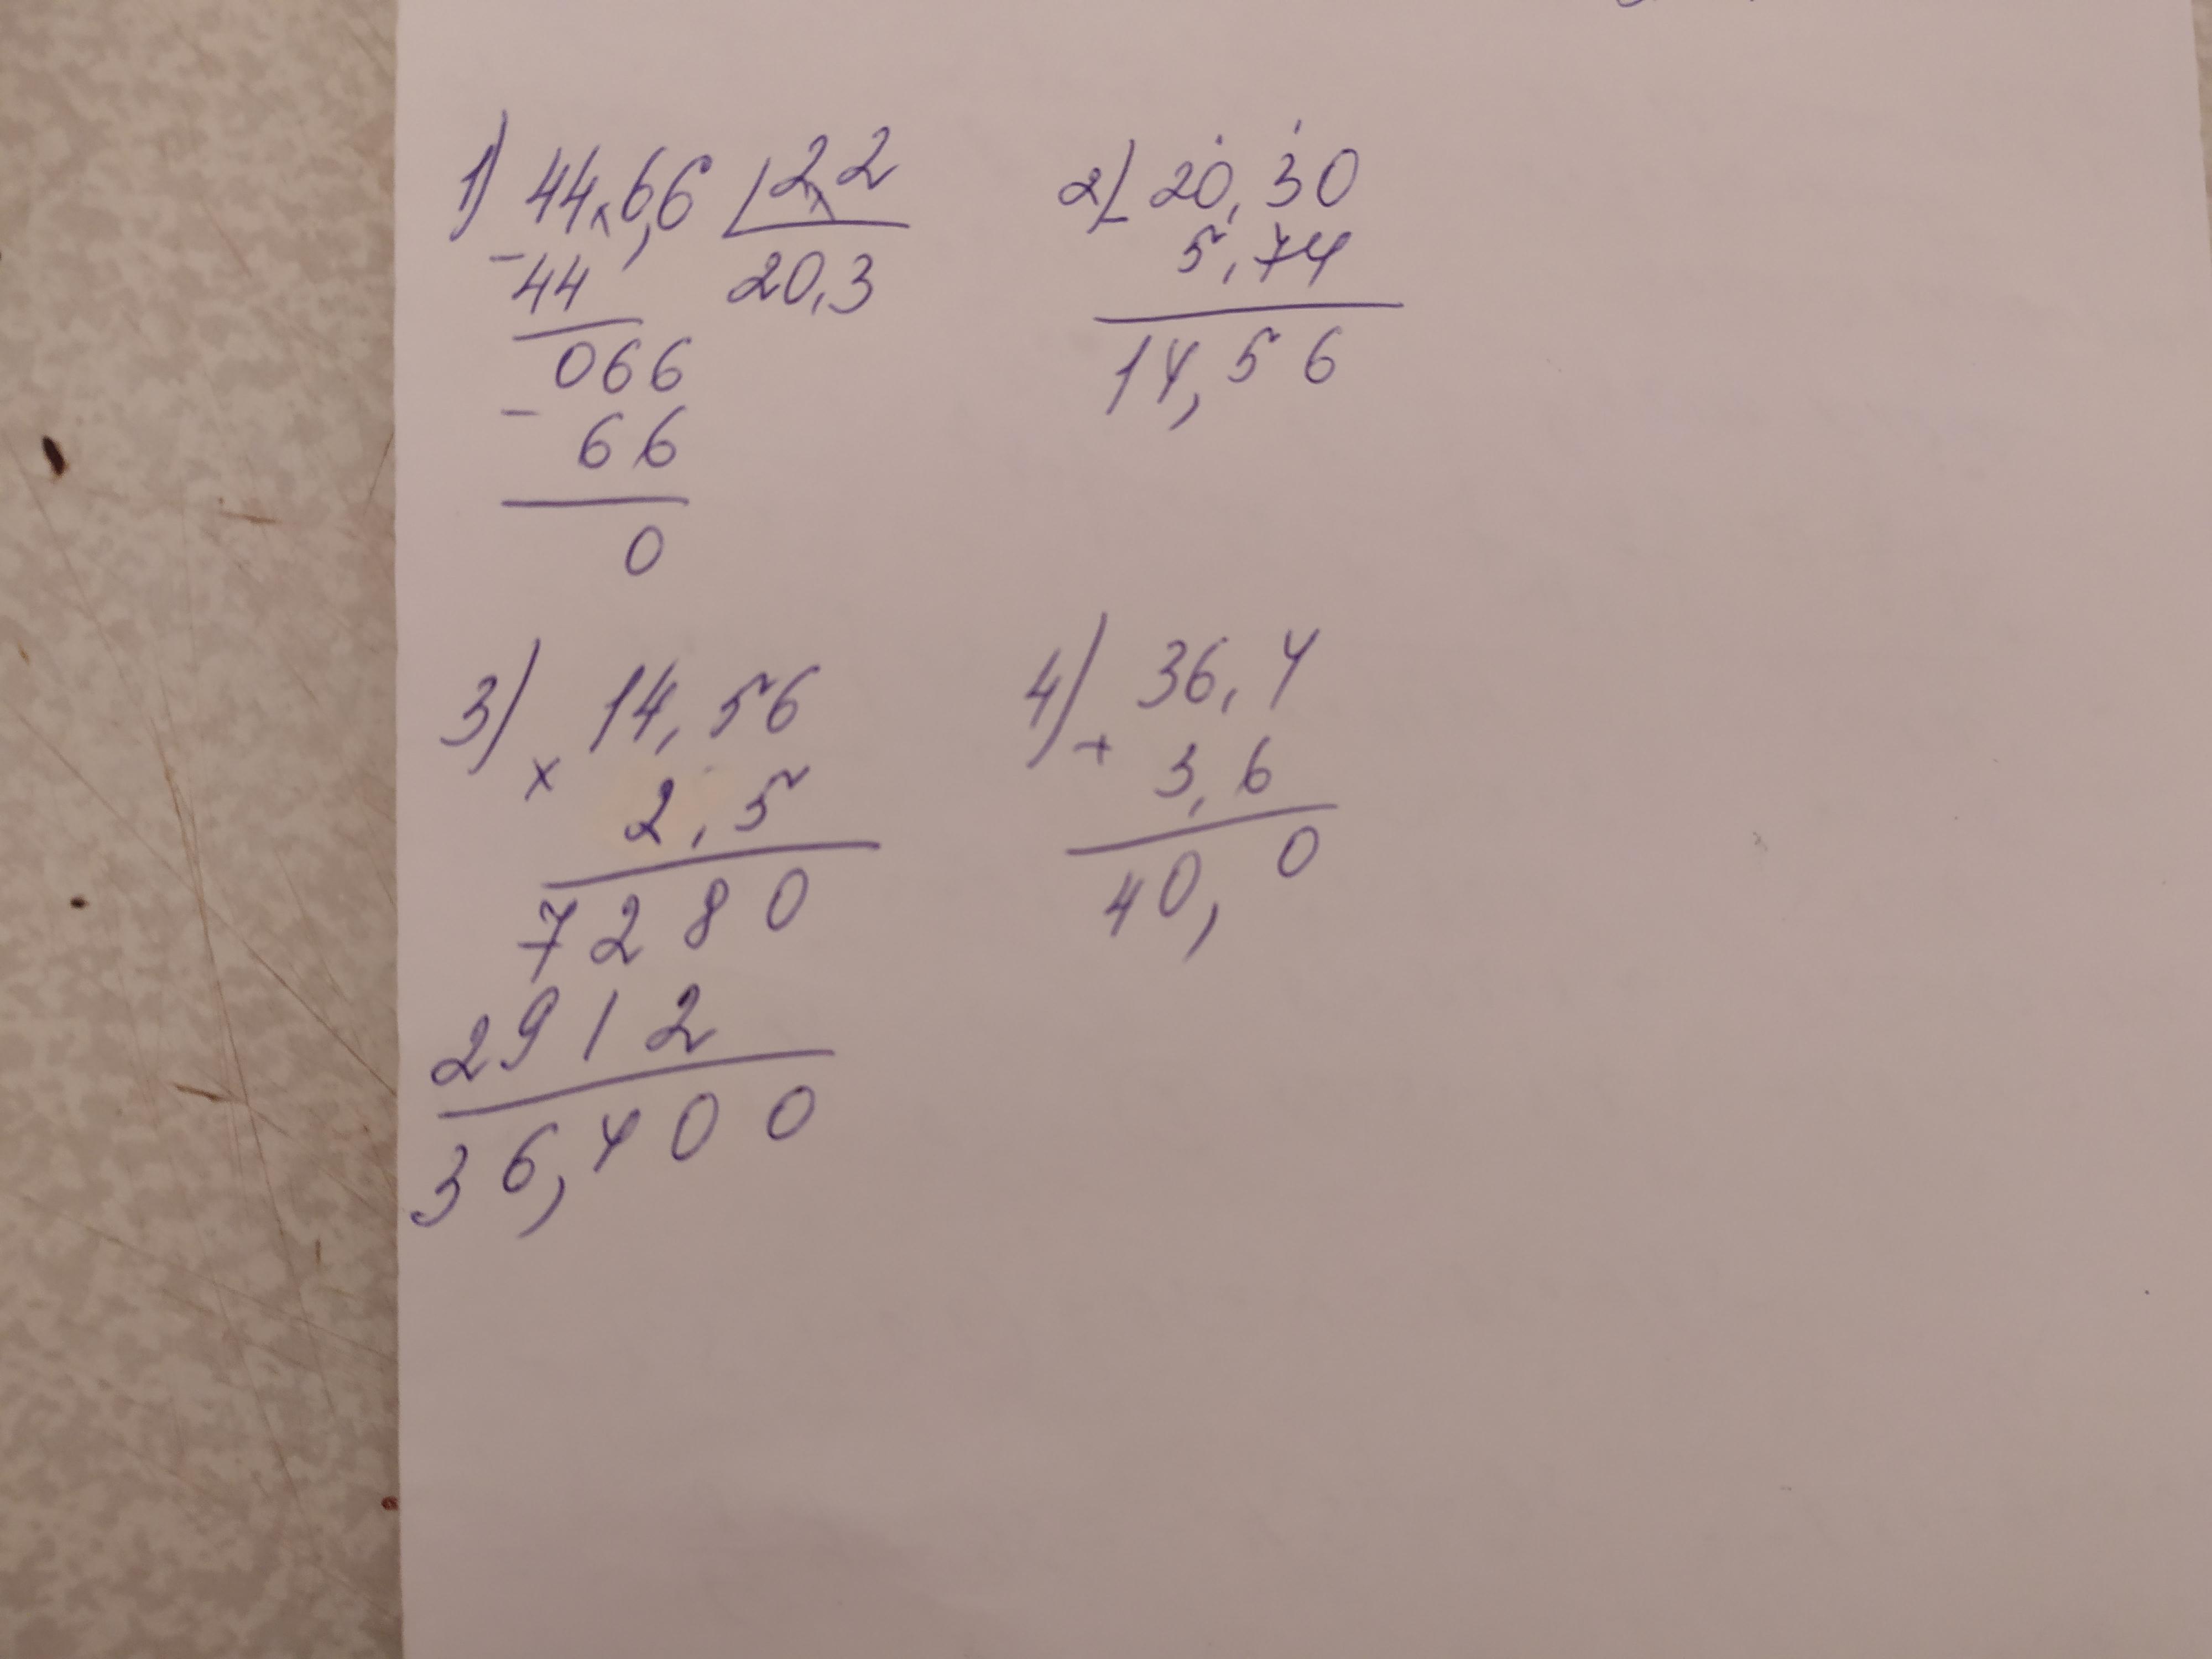 1) 44,6,6 | 2,2
- 44 20,3
066
- 66
0
2) - 20,30
5,74
14,56
3) x 14,56
2,5
7280
2912
36,400
4) + 36,4
3,6
40,0